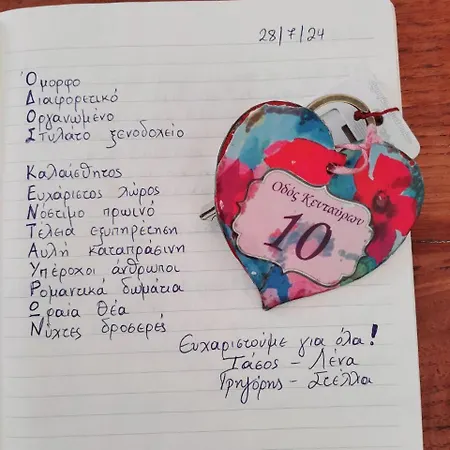 28/7/24
Όμορφο
Διαφορετικό
Οργανωμένο
Στυλάτο ξενοδοχείο
Καλαίσθητος
Ευχάριστος χώρος
Νόστιμο πρωινό
Τέλεια εξυπηρέτηση
Αυλή καταπράσινη
Υπέροχοι άνθρωποι
Ρομαντικά δωμάτια
Ωραία θέα
Νύχτες δροσερές
Ευχαριστούμε για όλα!
Τάσος - Λένα
Γρηγόρης - Στέλλα
Οδός Κενταύρων
10